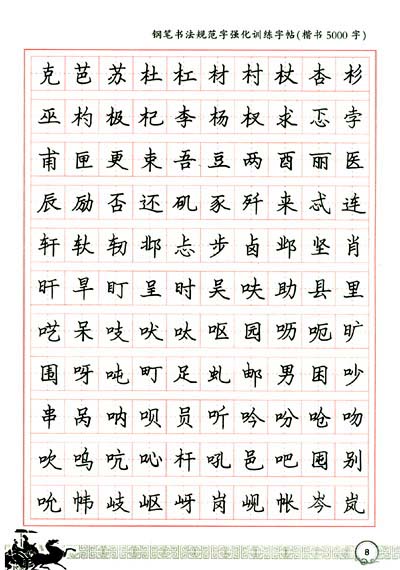 钢笔书法规范字强化训练字帖(楷书5000字)
克芭苏杜杠材村杖杏杉
巫杓极杞李杨杈求忑孛
甫匣更束吾豆两酉丽医
辰励否还矶豕歼来忒连
轩轪轫邶忐步卤邺坚肖
旰旱盯呈时吴呋助县里
呓呆吱吠呔呕园呖呃旷
围呀吨町足虬邮男困吵
串呙呐呗员听吟吩呛吻
吹呜吭吣杆吼邑吧囤别
吮帏岐岖岈岗岘帐岑岚
8